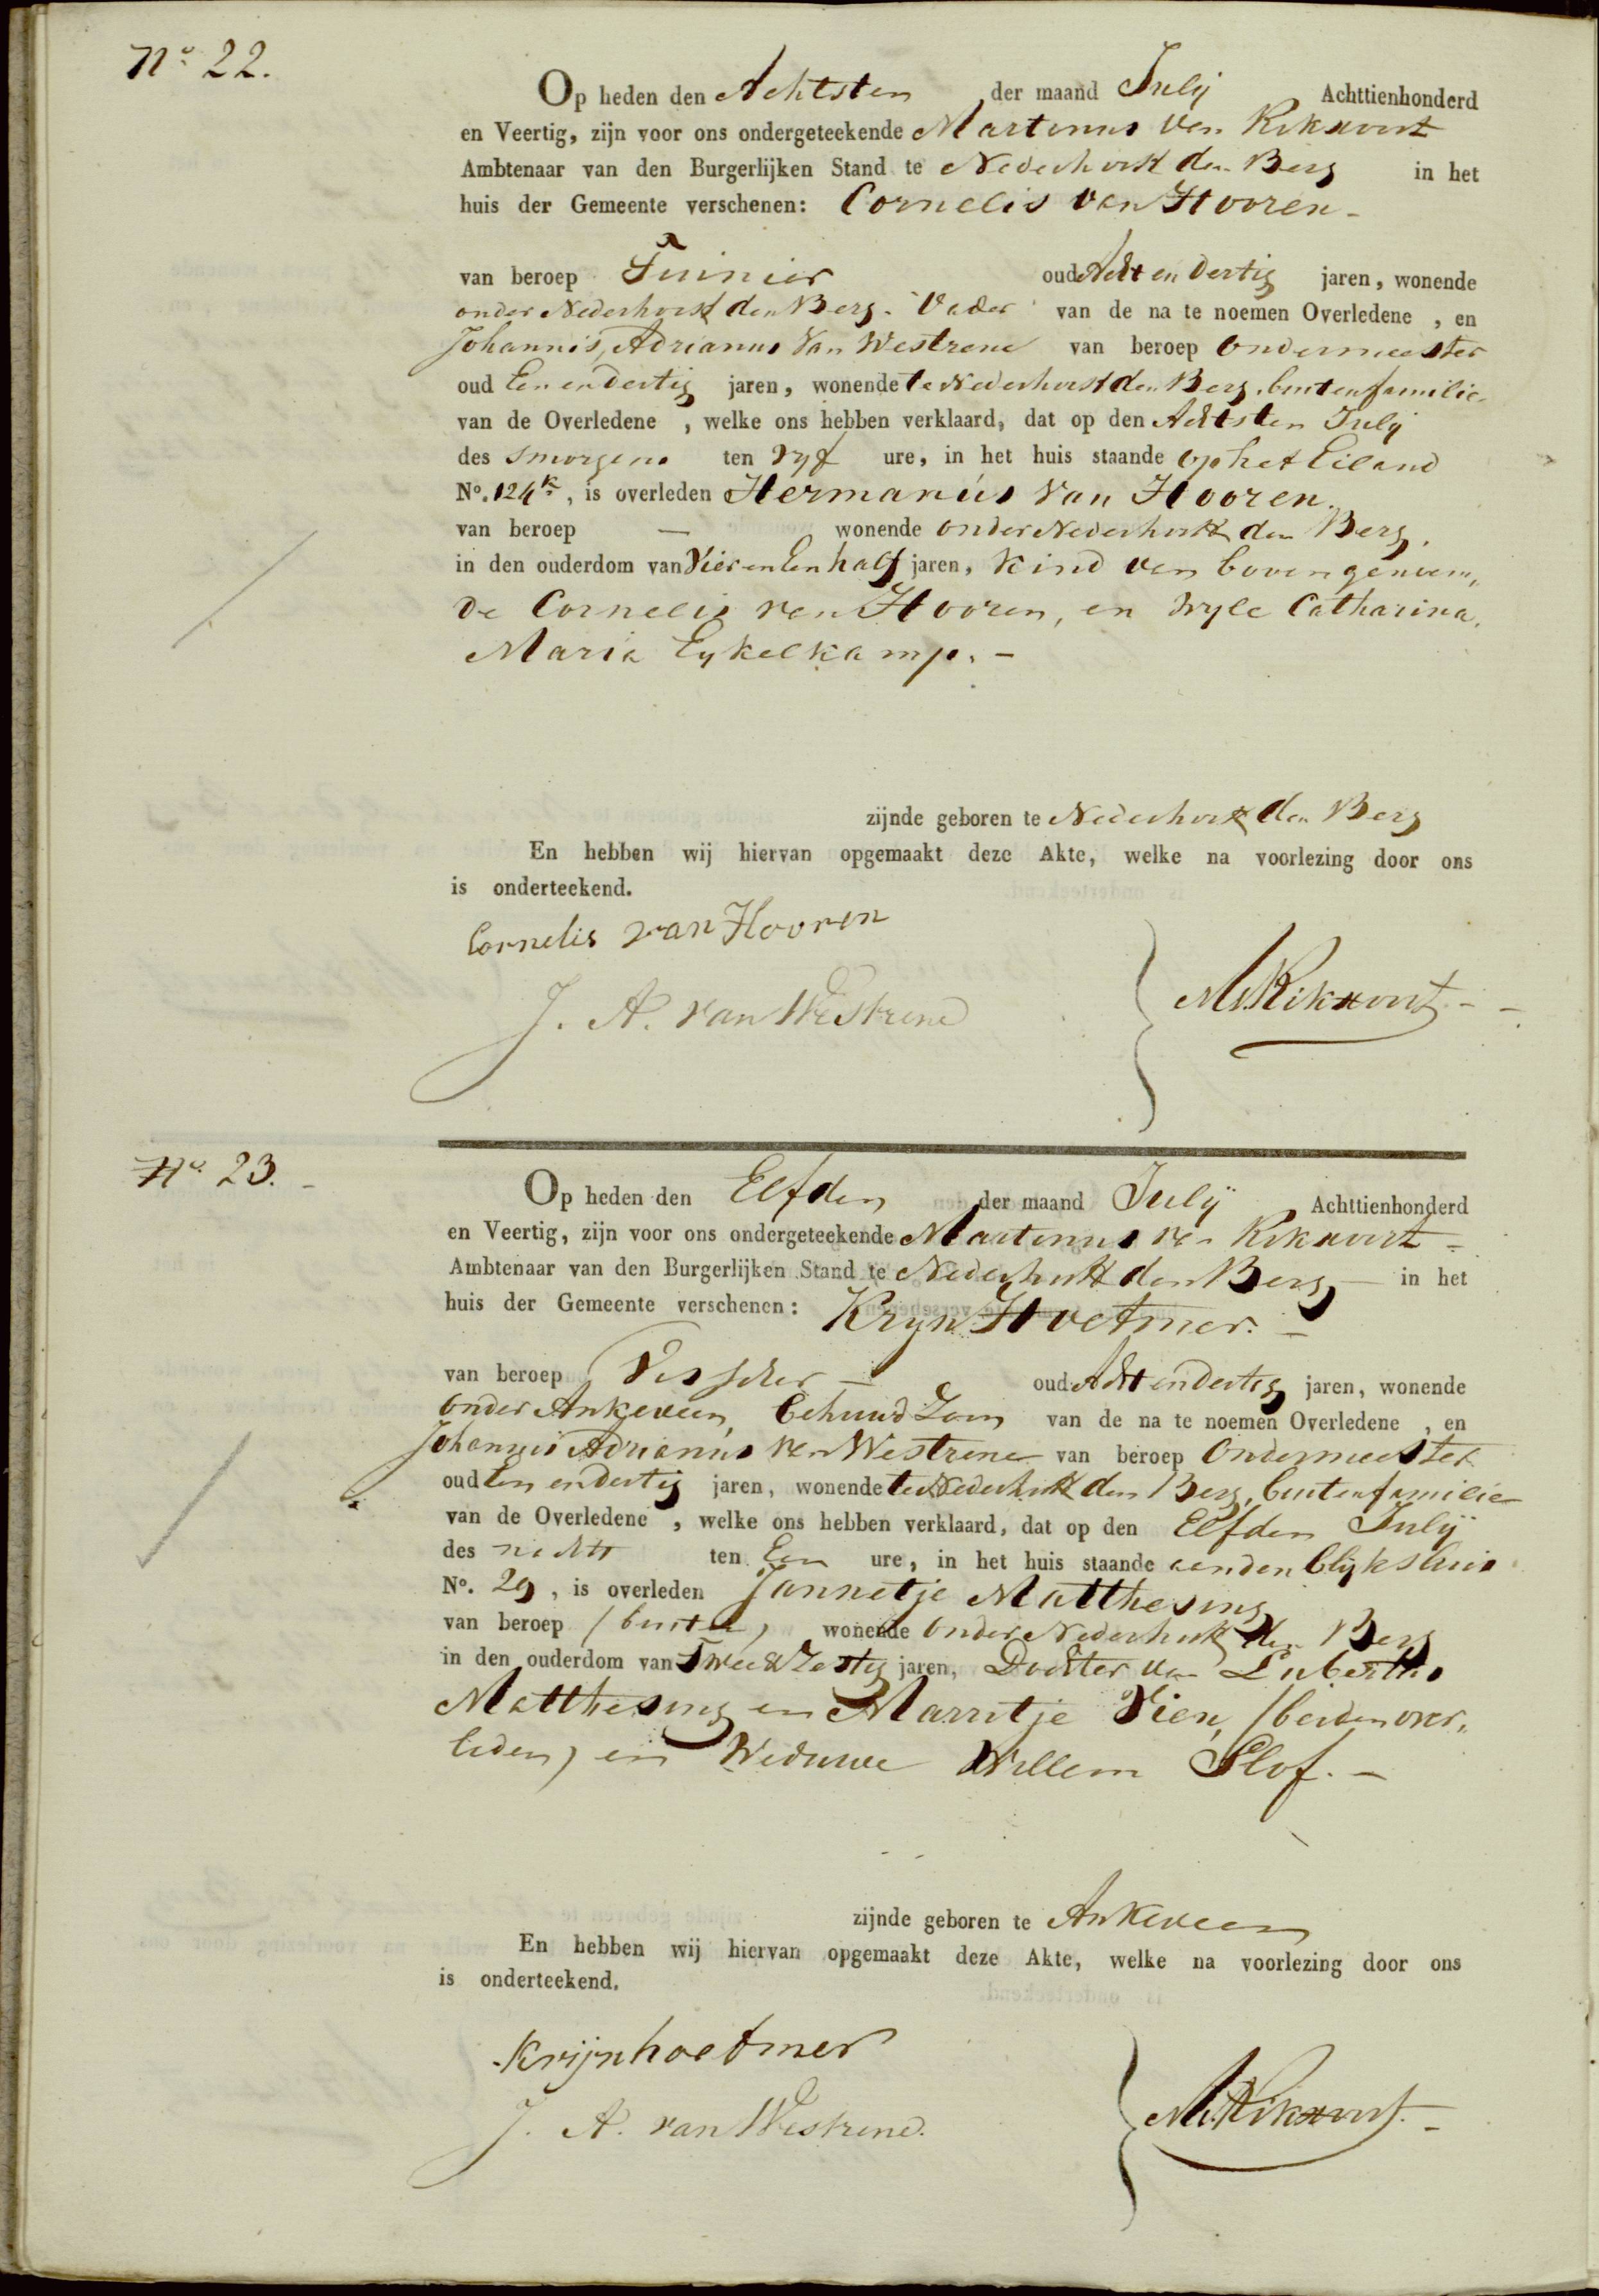 No. 22.
Op heden den Achtsten der maand Julij Achttienhonderd
en Veertig, zijn voor ons ondergeteekende Martinus van Rikxoort
Ambtenaar van den Burgerlijken Stand te Nederhorst den Berg in het
huis der Gemeente verschenen: Cornelis van Hooren -
van beroep Tuinier oud Acht en dertig jaren, wonende
onder Nederhorst den Berg. Vader van de na te noemen Overledene , en
Johannis, Adrianus van Westrene van beroep Ondermeester
oud Een en dertig jaren, wonende te Nederhorst den Berg, buiten familie
van de Overledene , welke ons hebben verklaard, dat op den Achtsten Julij
des smorgens ten vyf ure, in het huis staande op het Eiland
No. 124k, is overleden Hermanús van Hooren.
van beroep — wonende onder Nederhorst den Berg.
in den ouderdom van Vier en Een half jaren, Kind van bovengenoem,
de Cornelis van Hooren, en wyle Catharina,
Maria Eykelkamp. -
zijnde geboren te Nederhorst den Berg
En hebben wij hiervan opgemaakt deze Akte, welke na voorlezing door ons
is onderteekend.
Cornelis van Hooren
J. A. van Westrene
MvRikxoort -
No. 23. -
Op heden den Elfden der maand Julij Achttienhonderd
en Veertig, zijn voor ons ondergeteekende Martinus van Rikxoort -
Ambtenaar van den Burgerlijken Stand te Nederhorst den Berg - in het
huis der Gemeente verschenen: Kryn Hoetmer. -
van beroep Visscher - oud Acht en dertig jaren, wonende
onder Ankeveen, behuud Zoon van de na te noemen Overledene , en
Johannis Adrianús van Westrene van beroep Ondermeester
oud Een en dertig jaren, wonende te Nederhorst den Berg, buiten familie
van de Overledene , welke ons hebben verklaard, dat op den Elfden Julij
des nachts ten Een ure, in het huis staande aan den
No. 29, is overleden Jannetje Matthesing
van beroep / buiten) wonende onder Nederhorst den Berg
in den ouderdom van Twee & Zestig jaren, Dochter van Lubertus
Matthesing en Marritje Vien, /beiden over,
leden) en Weduwe Willem Slof. -
zijnde geboren te Ankeveen
En hebben wij hiervan opgemaakt deze Akte, welke na voorlezing door ons
is onderteekend.
Krijn hoetmer
J. A. van Westrene.
MvRikxoort. -